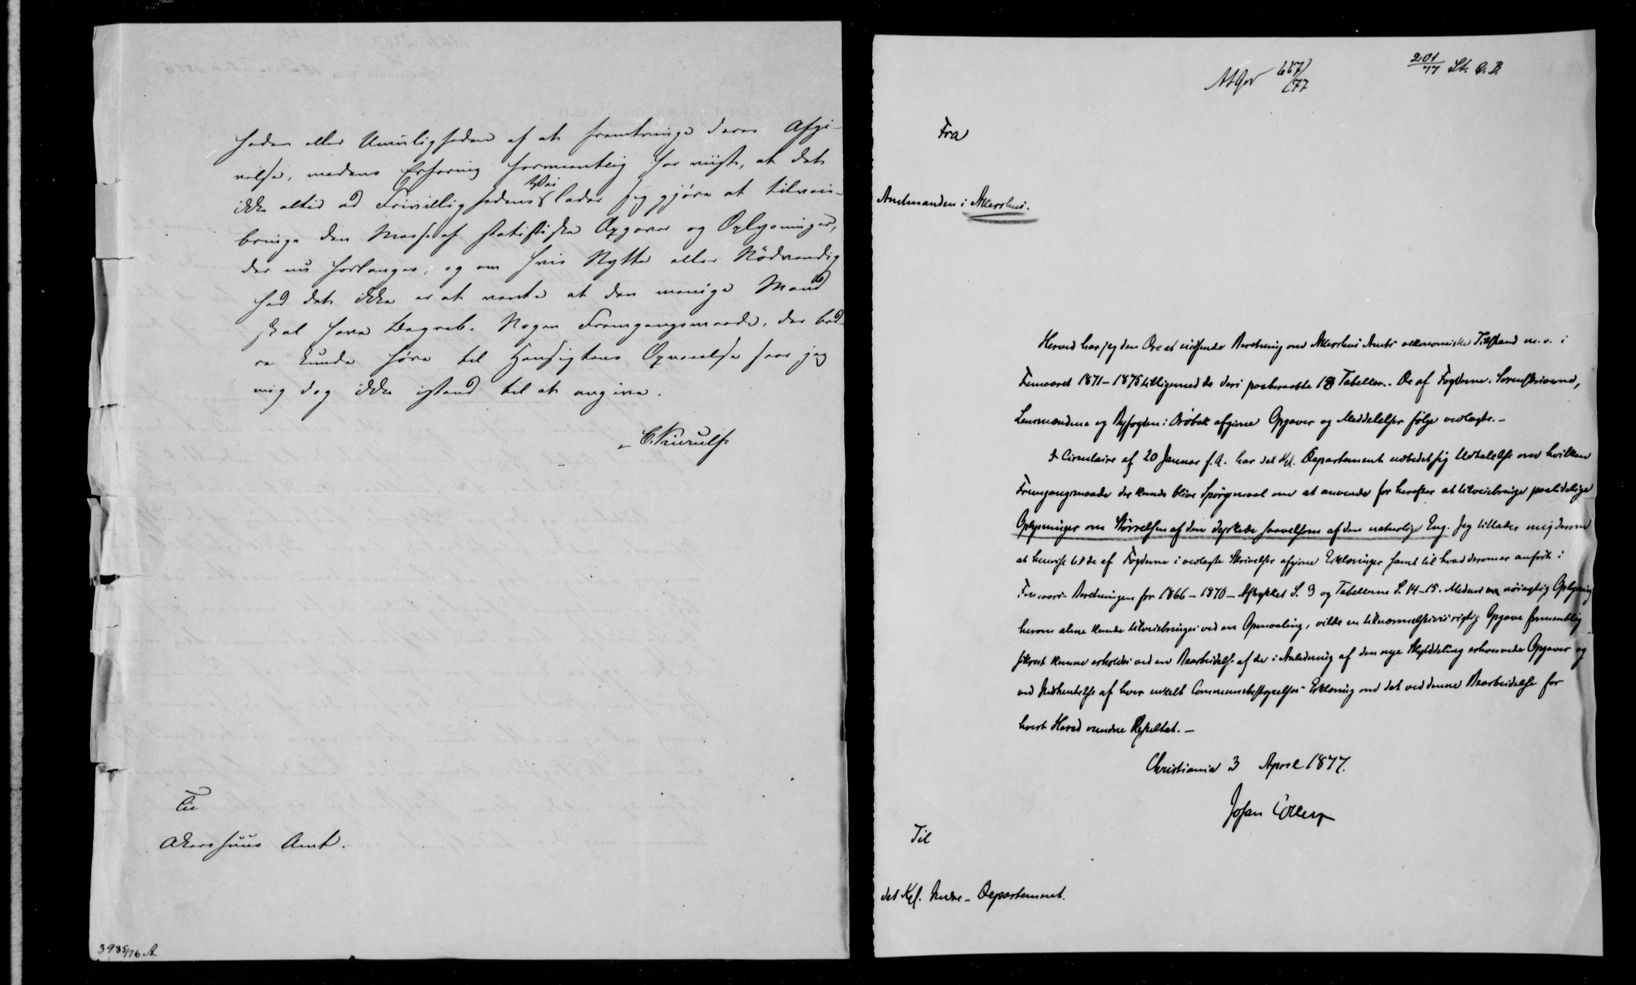 heden eller Umuligheden af at fremtvinge deres Afgi-
velse, medens Erfaring formentlig har viist, at det
ikke altid ad Frivillighedens Vei lader sig gjøre at tilveie-
bringe den Masse af statistiske Opgaver og Oplysninger,
der nu forlanges, og om hvis Nytte eller Nødvendig
hed det ikke er at vente at den menige Mand
skal have Begreb. Nogen Fremgangsmaade, der bed-
re kunde føre til Hensigtens Opnaaelse seer jeg
mig dog ikke istand til at angive.
Til
Akershuus Amt.
3985/76 A.
667/77
201/77 St. C. B.
Fra
Amtmanden i Akershus.
Herved har jeg den Ære at indsende Beretning om Akershus Amts oekonomiske Tilstand m. v. i
Femaaret 1871-1875 tilligemed de deri paaberaabte 18 Tabeller. De af Fogderne, Sorenskriverne,
Lensmændene og Byfogden i Drøbak afgivne Opgaver og Meddelelser følge vedlagte. -
I Circulaire af 20 Januar f. A. har det Kgl. Departement udbedet sig Udtalelse om hvilken
Fremgangsmaade der kunde blive Spørgsmaal om at anvende for herefter at tilveiebringe paalidelige
Oplysninger om Størrelsen af den dyrkede saavelsom af den naturlige Eng. Jeg tillader mig desom
at henvise til de af Fogderne i vedlagte Skrivelser afgivne Erklæringer samt til hvad derom er anført i
Femaars-Beretningen for 1866-1870 - Aftrykket S. 9 og Tabellerne S. 14-15. Medens en nøiagtig Oplysning
herom alene kunde tilveiebringes ved en Opmaaling, vilde en tilnærmelsesviis rigtig Opgave formentlig
sikrest kunne erholdes ved en Bearbeidelse af de i Anledning af den nye Skylddeling erhvervede Opgaver og
ved Indhentelse af hver enkelt Communebestyrelses Erklæring om det ved denne Bearbeidelse for
hvert Herred vundne Resultat. -
Christiania 3 April 1877.
Johan Collett
Til
det Kgl. Indre-Departement.